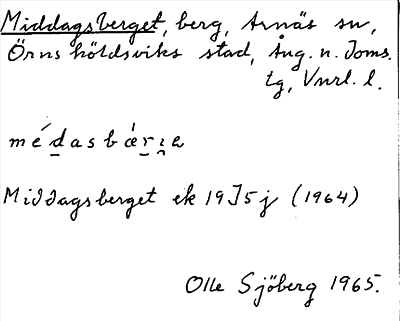 Middagsberget, berg, Arnäs sn,
Örnsköldsviks stad, Ång. n. Doms.
tg, Vnrl. l.
médasbärɪ̯a
Middagsberget ek 19J5j (1964)
Olle Sjöberg 1965.